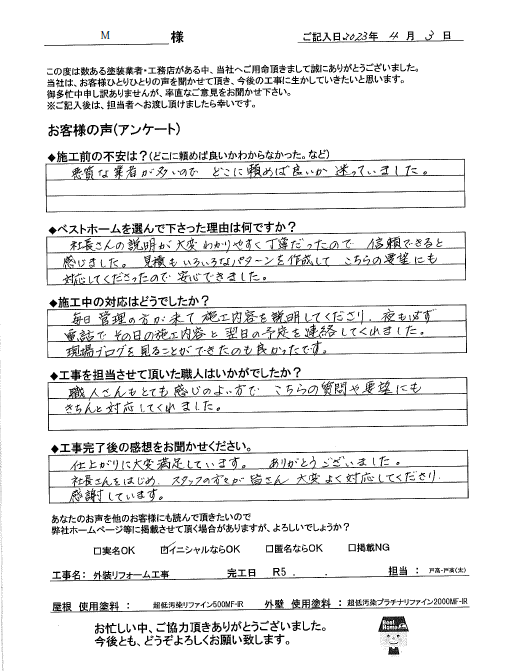 M 様 ご記入日2023年 4月 3日
この度は数ある塗装業者・工務店がある中、当社へご用命頂きまして誠にありがとうございました。
当社は、お客様ひとりひとりの声を聞かせて頂き、今後の工事に生かしていきたいと思います。
御多忙中申し訳ありませんが、率直なご意見をお聞かせ下さい。
※ご記入後は、担当者へお渡し頂けましたら幸いです。
お客様の声(アンケート)
◆施工前の不安は?(どこに頼めば良いかわからなかった。など)
悪質な業者が多いので どこに頼めば良いか 迷っていました。
◆ベストホームを選んで下さった理由は何ですか?
社長さんの説明が大変わかりやすく丁寧だったので 信頼できると
感じました。見積もいろいろなパターンを作成して こちらの要望にも
対応してくださったので 安心できました。
◆施工中の対応はどうでしたか?
毎日管理の方が来て 施工内容を説明してくださり、夜も必ず
電話でその日の施工内容と翌日の予定を連絡してくれました。
現場ブログを見ることができたのも良かったです。
◆工事を担当させて頂いた職人はいかがでしたか?
職人さんもとても感じのよい方で こちらの質問や要望にも
きちんと対応してくれました。
◆工事完了後の感想をお聞かせください。
仕上がりに大変満足しています。 ありがとうございました。
社長さんをはじめ、スタッフの方々が皆さん大変よく対応してくださり、
感謝しています。
あなたのお声を他のお客様にも読んで頂きたいので
弊社ホームページ等に掲載させて頂く場合がありますが、よろしいでしょうか?
□実名OK ☑イニシャルならOK □匿名ならOK □掲載NG
工事名: 外装リフォーム工事 完工日 R5 . . 担当: 戸高・戸高(太)
屋根 使用塗料: 超低汚染リファイン500MF-IR 外壁 使用塗料: 超低汚染プラチナリファイン2000MF-IR
お忙しい中、ご協力頂きありがとうございました。
今後とも、どうぞよろしくお願い致します。
Best Home